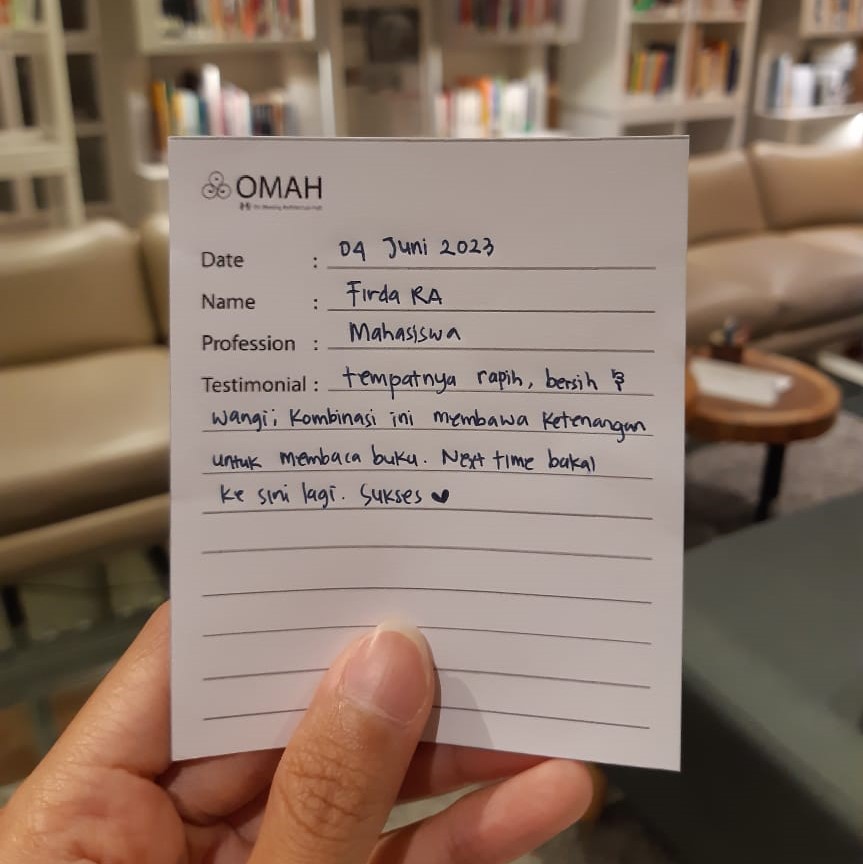 OMAH
Date : 04 Juni 2023
Name : Firda RA
Profession : Mahasiswa
Testimonial : tempatnya rapih, bersih &
wangi; kombinasi ini membawa ketenangan
untuk membaca buku. Next time bakal
ke sini lagi. Sukses ♥